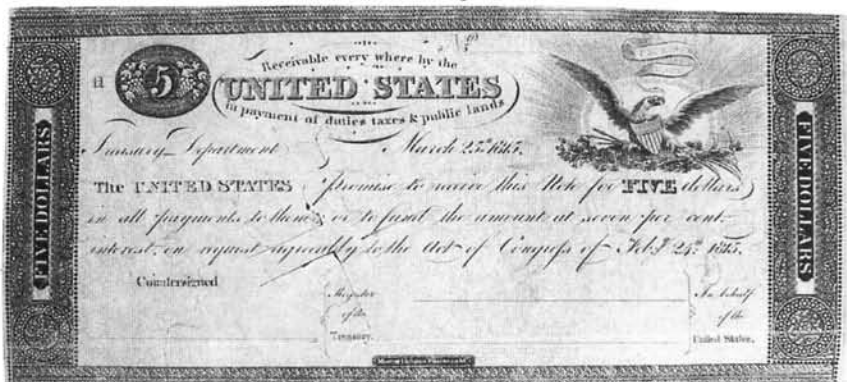 Nº
Receivable every where by the
a 5 UNITED STATES
in payment of duties taxes & public lands
Treasury Department March 25th 1815.
The UNITED STATES promise to receive this Note for FIVE dollars
in all payments to them, or to fund the amount at seven per cent
interest, on request agreeably to the Act of Congress of Feby 24th 1815.
FIVE DOLLARS
FIVE DOLLARS
Countersigned
Register
of the
Treasury.
In behalf
of the
United States.